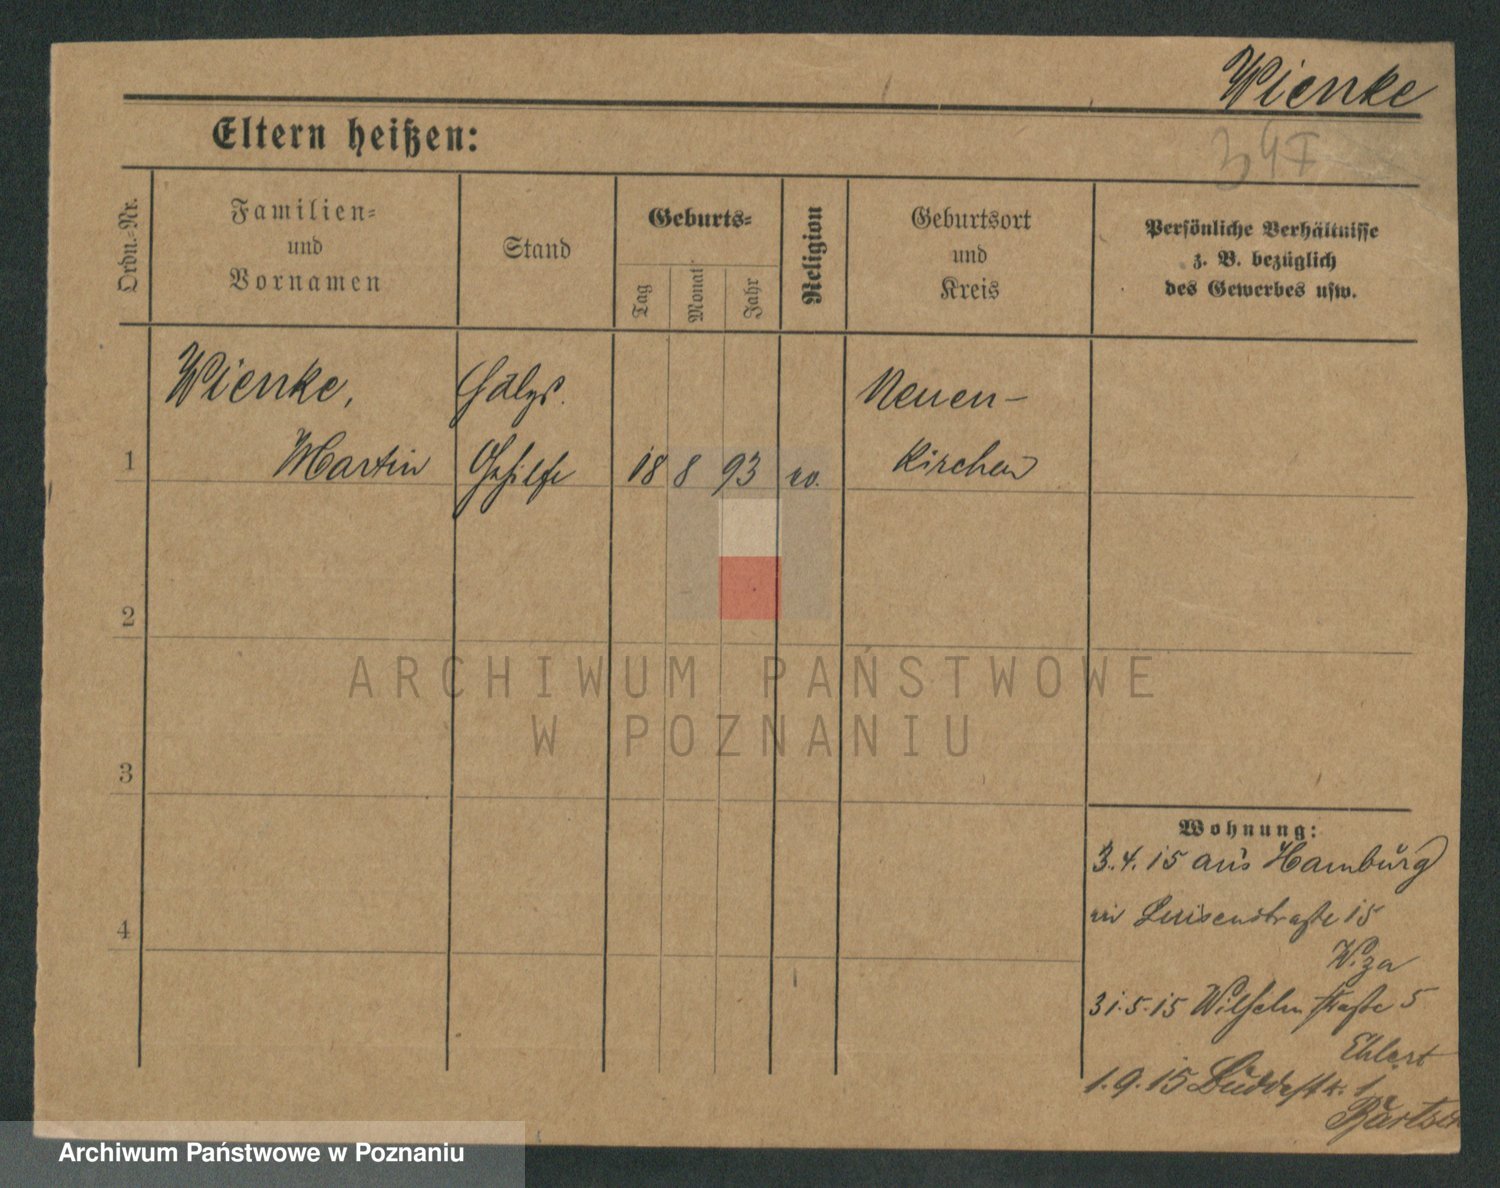 Wienke
Eltern heißen:
Ordn.-Nr.
Familien-
und
Vornamen
Stand
Geburts-
Tag
Monat
Jahr
Religion
Geburtsort
und
Kreis
Persönliche Verhältnisse
z. B. bezüglich
des Gewerbes usw.
Wienke,
Neuen-
1 Martin Gehilfe 18 8 93 kirchen
2
3
4
Wohnung:
3.4.15 aus Hamburg
Luisenstraße 15
31.5.15 Wilhelmstraße 5
Ehlert
1.9.15 Buddestr. 1
ARCHIWUM PAŃSTWOWE
W POZNANIU
Archiwum Państwowe w Poznaniu